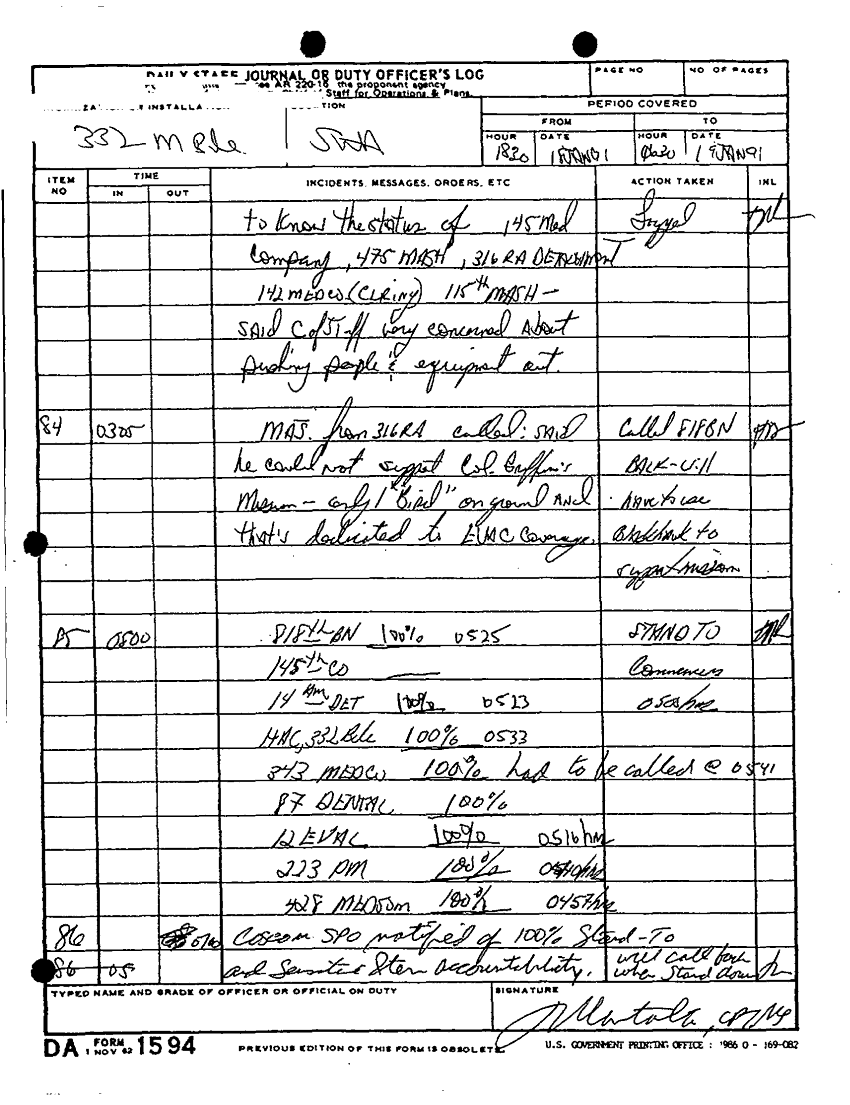 DAILY STAFF JOURNAL OR DUTY OFFICER'S LOG
see AR 220-15 the proponent agency
Staff for Operations & Plans
PAGE NO
NO OF PAGES
INSTALLA TION
PERIOD COVERED
FROM
TO
HOUR
DATE
HOUR
DATE
332 M Bde
1830
19JAN91
ITEM NO
TIME
IN
OUT
INCIDENTS, MESSAGES, ORDERS, ETC
ACTION TAKEN
INL
to know the status of 145 Med
Company, 475 MASH, 316 RA DETACHMENT
142 MEDCO (CLRING) 115th MASH —
SAID C of Staff very concerned About
pushing people & equipment out.
84 0305 MAJ. from 316 RA called: SAID Called 818 BN
he could not support Col. Griffin's BACK - will
Mission - only 1 "Bird" on ground AND have to use
that's dedicated to EVAC Coverage. Blackhawk to
support mission
85 0500 818th BN 100% 0525 STAND TO
145th CO Commences
14 DET 100% 0513 0500 hrs
HHC, 332 Bde 100% 0533
343 MEDCO 100% had to be called @ 0541
87 DENTAL 100%
12 EVAC 100% 0516 hrs
223 PM 100% 0540 hrs
428 MEDSOM 100% 0457 hrs
86 COSCOM SPO notified of 100% Stand-To
86 05 and Sensitive Item Accountability. will call back when Stand down
TYPED NAME AND GRADE OF OFFICER OR OFFICIAL ON DUTY
SIGNATURE
DA FORM 1 NOV 62 1594
PREVIOUS EDITION OF THIS FORM IS OBSOLETE.
U.S. GOVERNMENT PRINTING OFFICE : 1986 O - 169-082